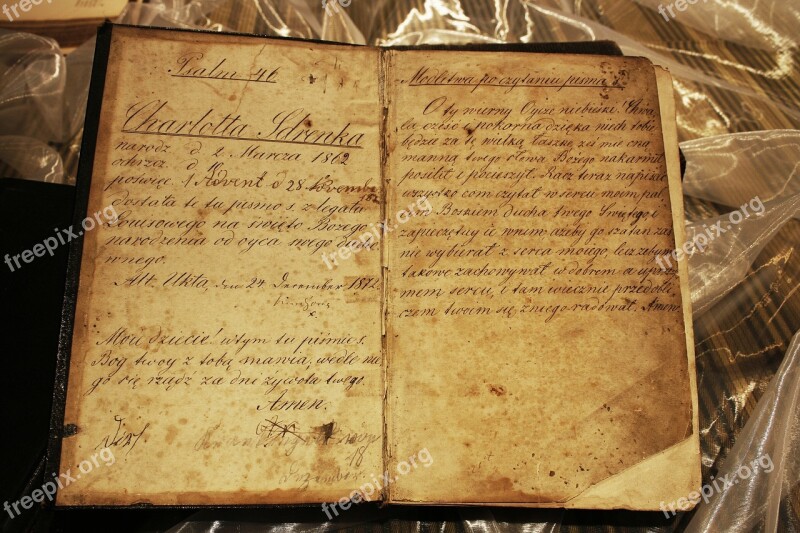 Psalm 46
Charlotta Sdrenka
narodz. d. 2. Marca 1862
ochrz. d.
poświęc. 1. Advent d. 28 November
dostała te tu pismo s. z legata
Louisowego na święto Bożego
narodzenia od oyca swego ducho
wnego.
Alt. Ukta, den 24. December 1872.
Moie dziecie! w tym tu piśmie s.
Bog twoy z tobą mawia, wedle nie
go się rządz za dni żywota twego.
Amen.
Modlitwa po czytaniu pisma s.
O ty wierny Oycze niebieski! Chwa
ła cześć i pokorna dzięka niech tobie
będzie za tę wielką łaskę, żeś mię oną
manną twego słowa Bożego nakarmił
posilił i pocieszył. Racz teraz napisać
wszystko com czytał w sercu moim pal
cem Boskiem ducha twego Świętego i
zapieczętuy w niem, ażeby go szatan zaś
nie wybierał z serca moiego, lecz żebym
takowe zachowywał w dobrem a uprzy
mem sercu, i tam wiecznie przed obli
czem twoiem się z niego radował, Amen.
freepix.org
freepix.org
freepix.org
freepix.org
freepix.org
freepix.org
freepix.org
freepix.org
freepix.org